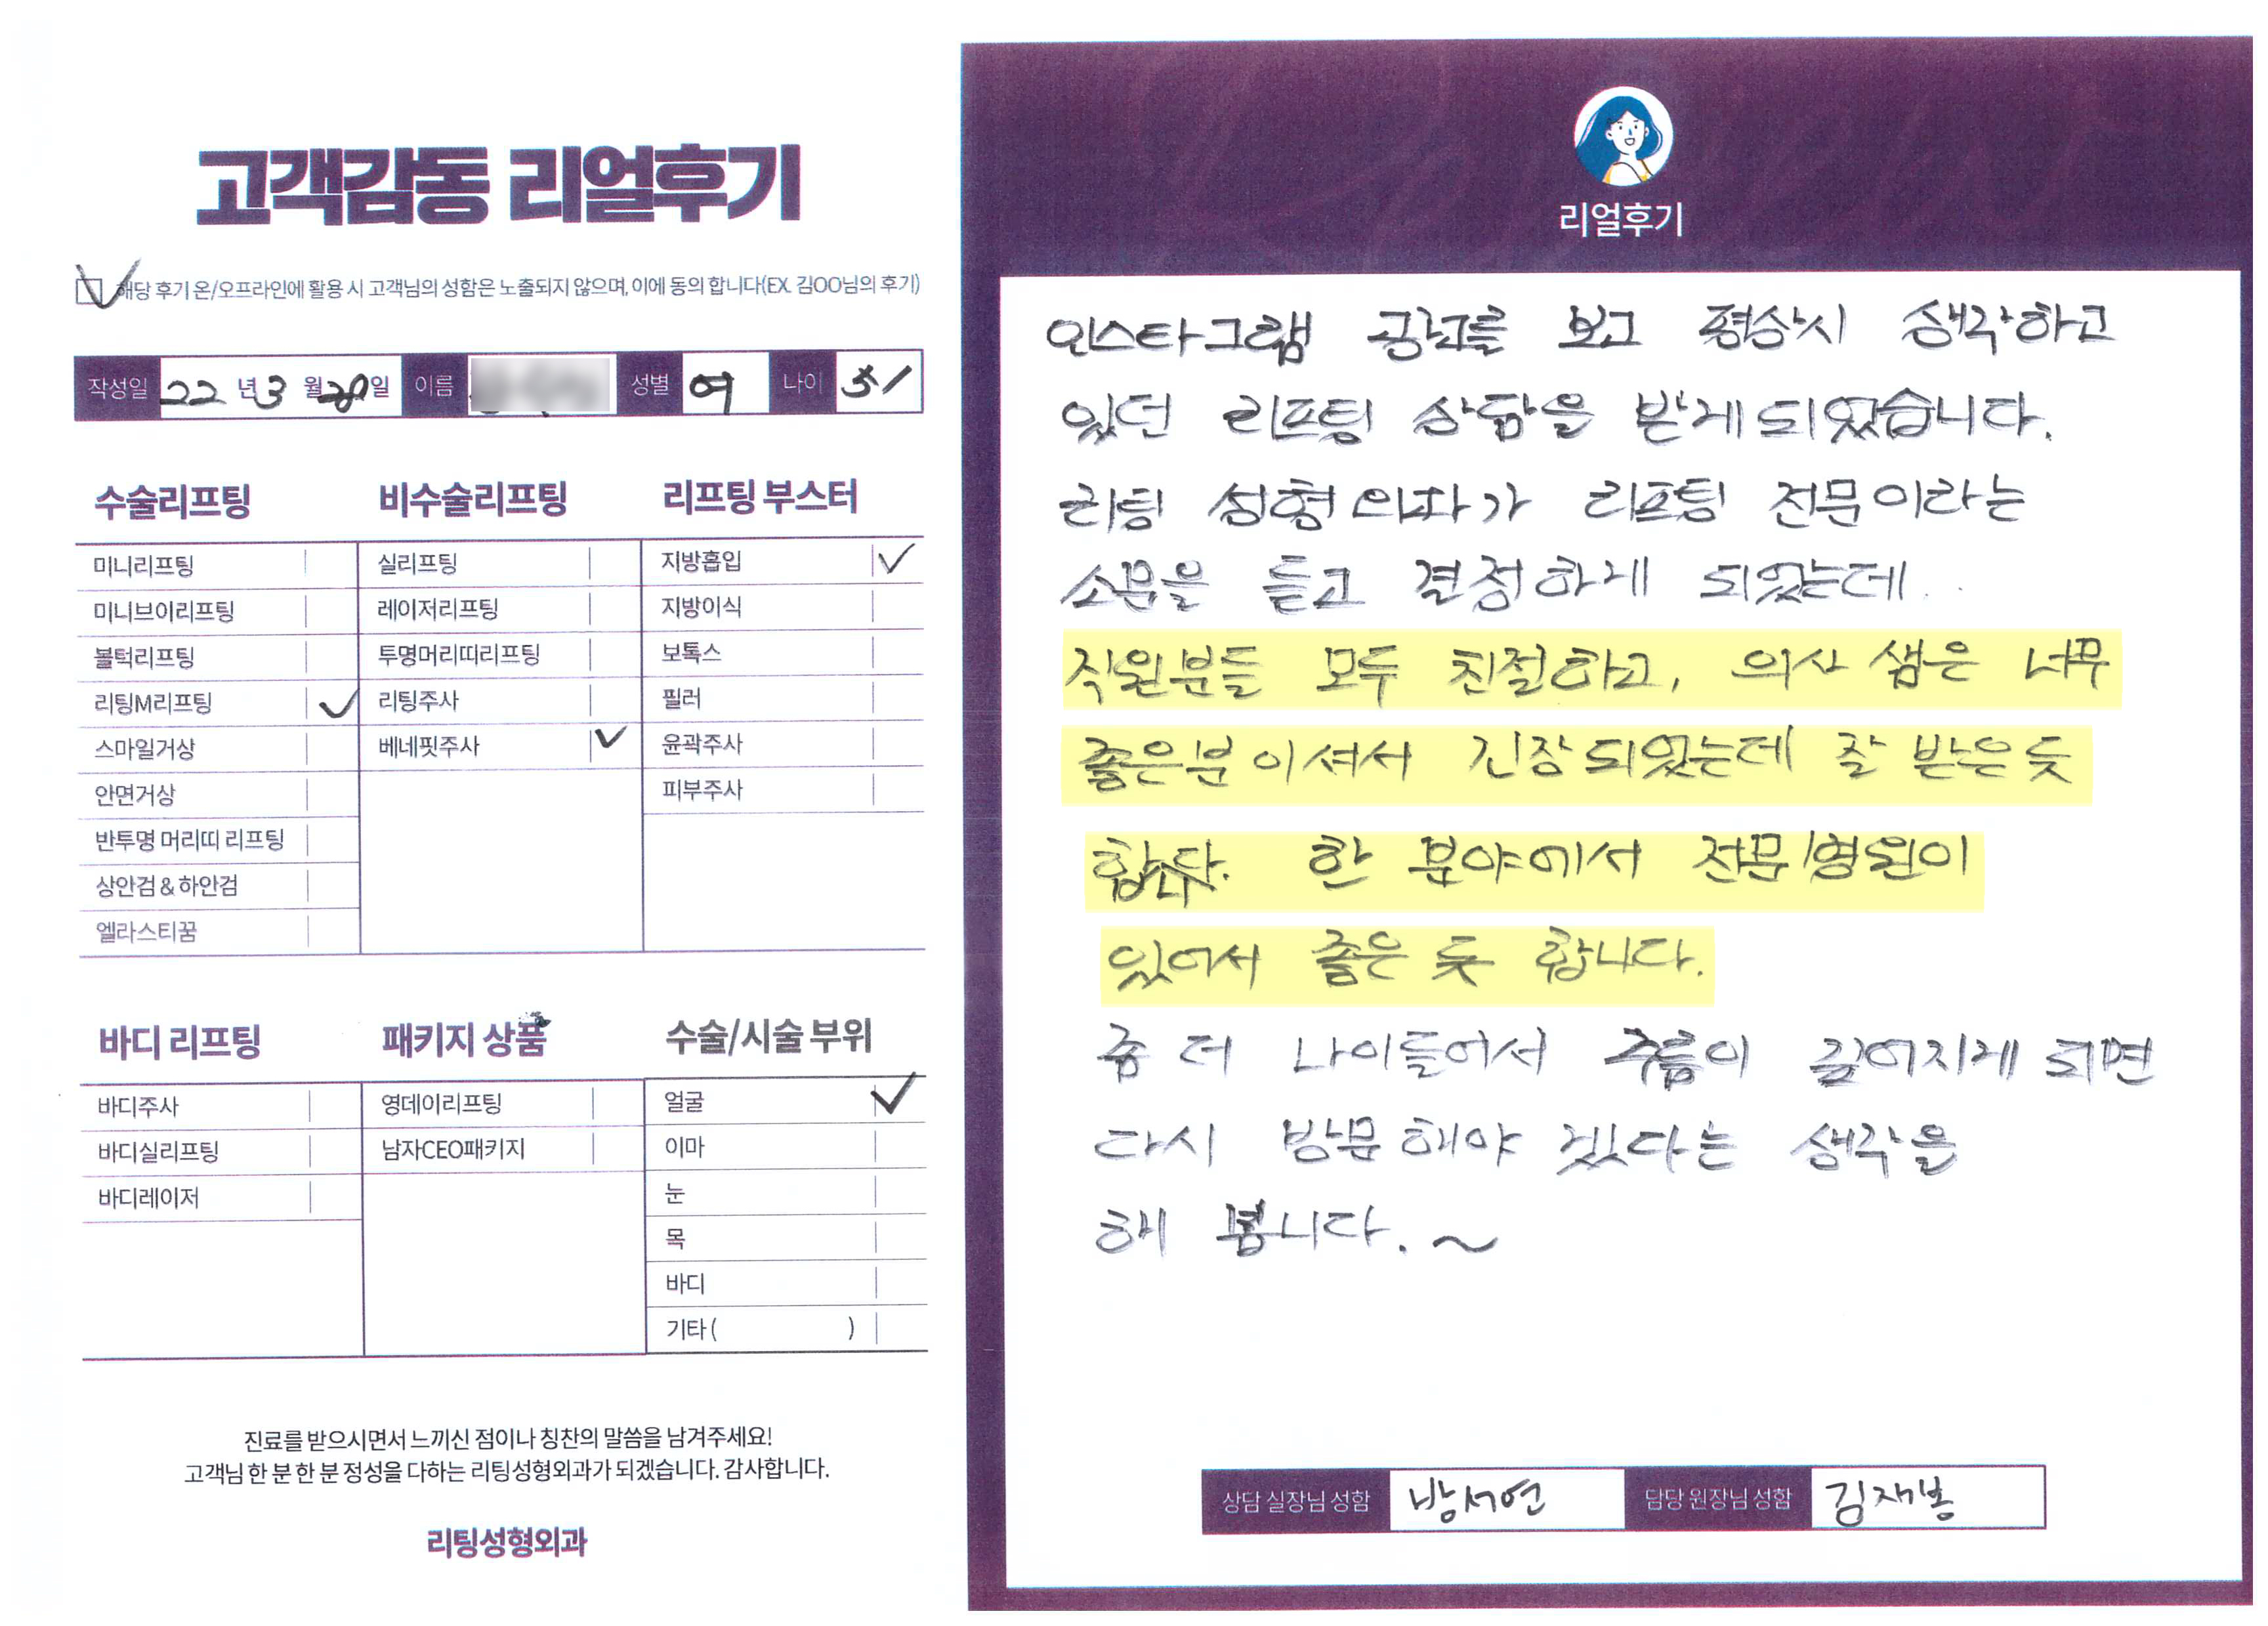 고객감동 리얼후기
해당 후기 온/오프라인에 활용 시 고객님의 성함은 노출되지 않으며, 이에 동의 합니다(EX. 김OO님의 후기)
작성일 22 년 3 월 일 이름 성별 여 나이 51
수술리프팅 비수술리프팅 리프팅 부스터
미니리프팅 실리프팅 지방흡입 ✓
미니브이리프팅 레이저리프팅 지방이식
볼턱리프팅 투명머리띠리프팅 보톡스
리팅M리프팅 ✓ 리팅주사 필러
스마일거상 베네핏주사 ✓ 윤곽주사
안면거상 피부주사
반투명 머리띠 리프팅
상안검 & 하안검
엘라스티꿈
바디 리프팅 패키지 상품 수술/시술 부위
바디주사 영데이리프팅 얼굴 ✓
바디실리프팅 남자CEO패키지 이마
바디레이저 눈
목
바디
기타 ( )
진료를 받으시면서 느끼신 점이나 칭찬의 말씀을 남겨주세요!
고객님 한 분 한 분 정성을 다하는 리팅성형외과가 되겠습니다. 감사합니다.
리팅성형외과
리얼후기
인스타그램 광고를 보고 평상시 생각하고
있던 리프팅 상담을 받게 되었습니다.
리팅 성형외과가 리프팅 전문이라는
소문을 듣고 결정하게 되었는데..
직원분들 모두 친절하고, 의사 쌤은 너무
좋은분이셔서 긴장되었는데 잘 받은 듯
합니다. 한 분야에서 전문병원이
있어서 좋은 듯 합니다.
좀 더 나이들어서 주름이 깊어지게 되면
다시 방문해야 겠다는 생각을
해 봅니다. ~
상담 실장님 성함 방서연 담당 원장님 성함 김재봉